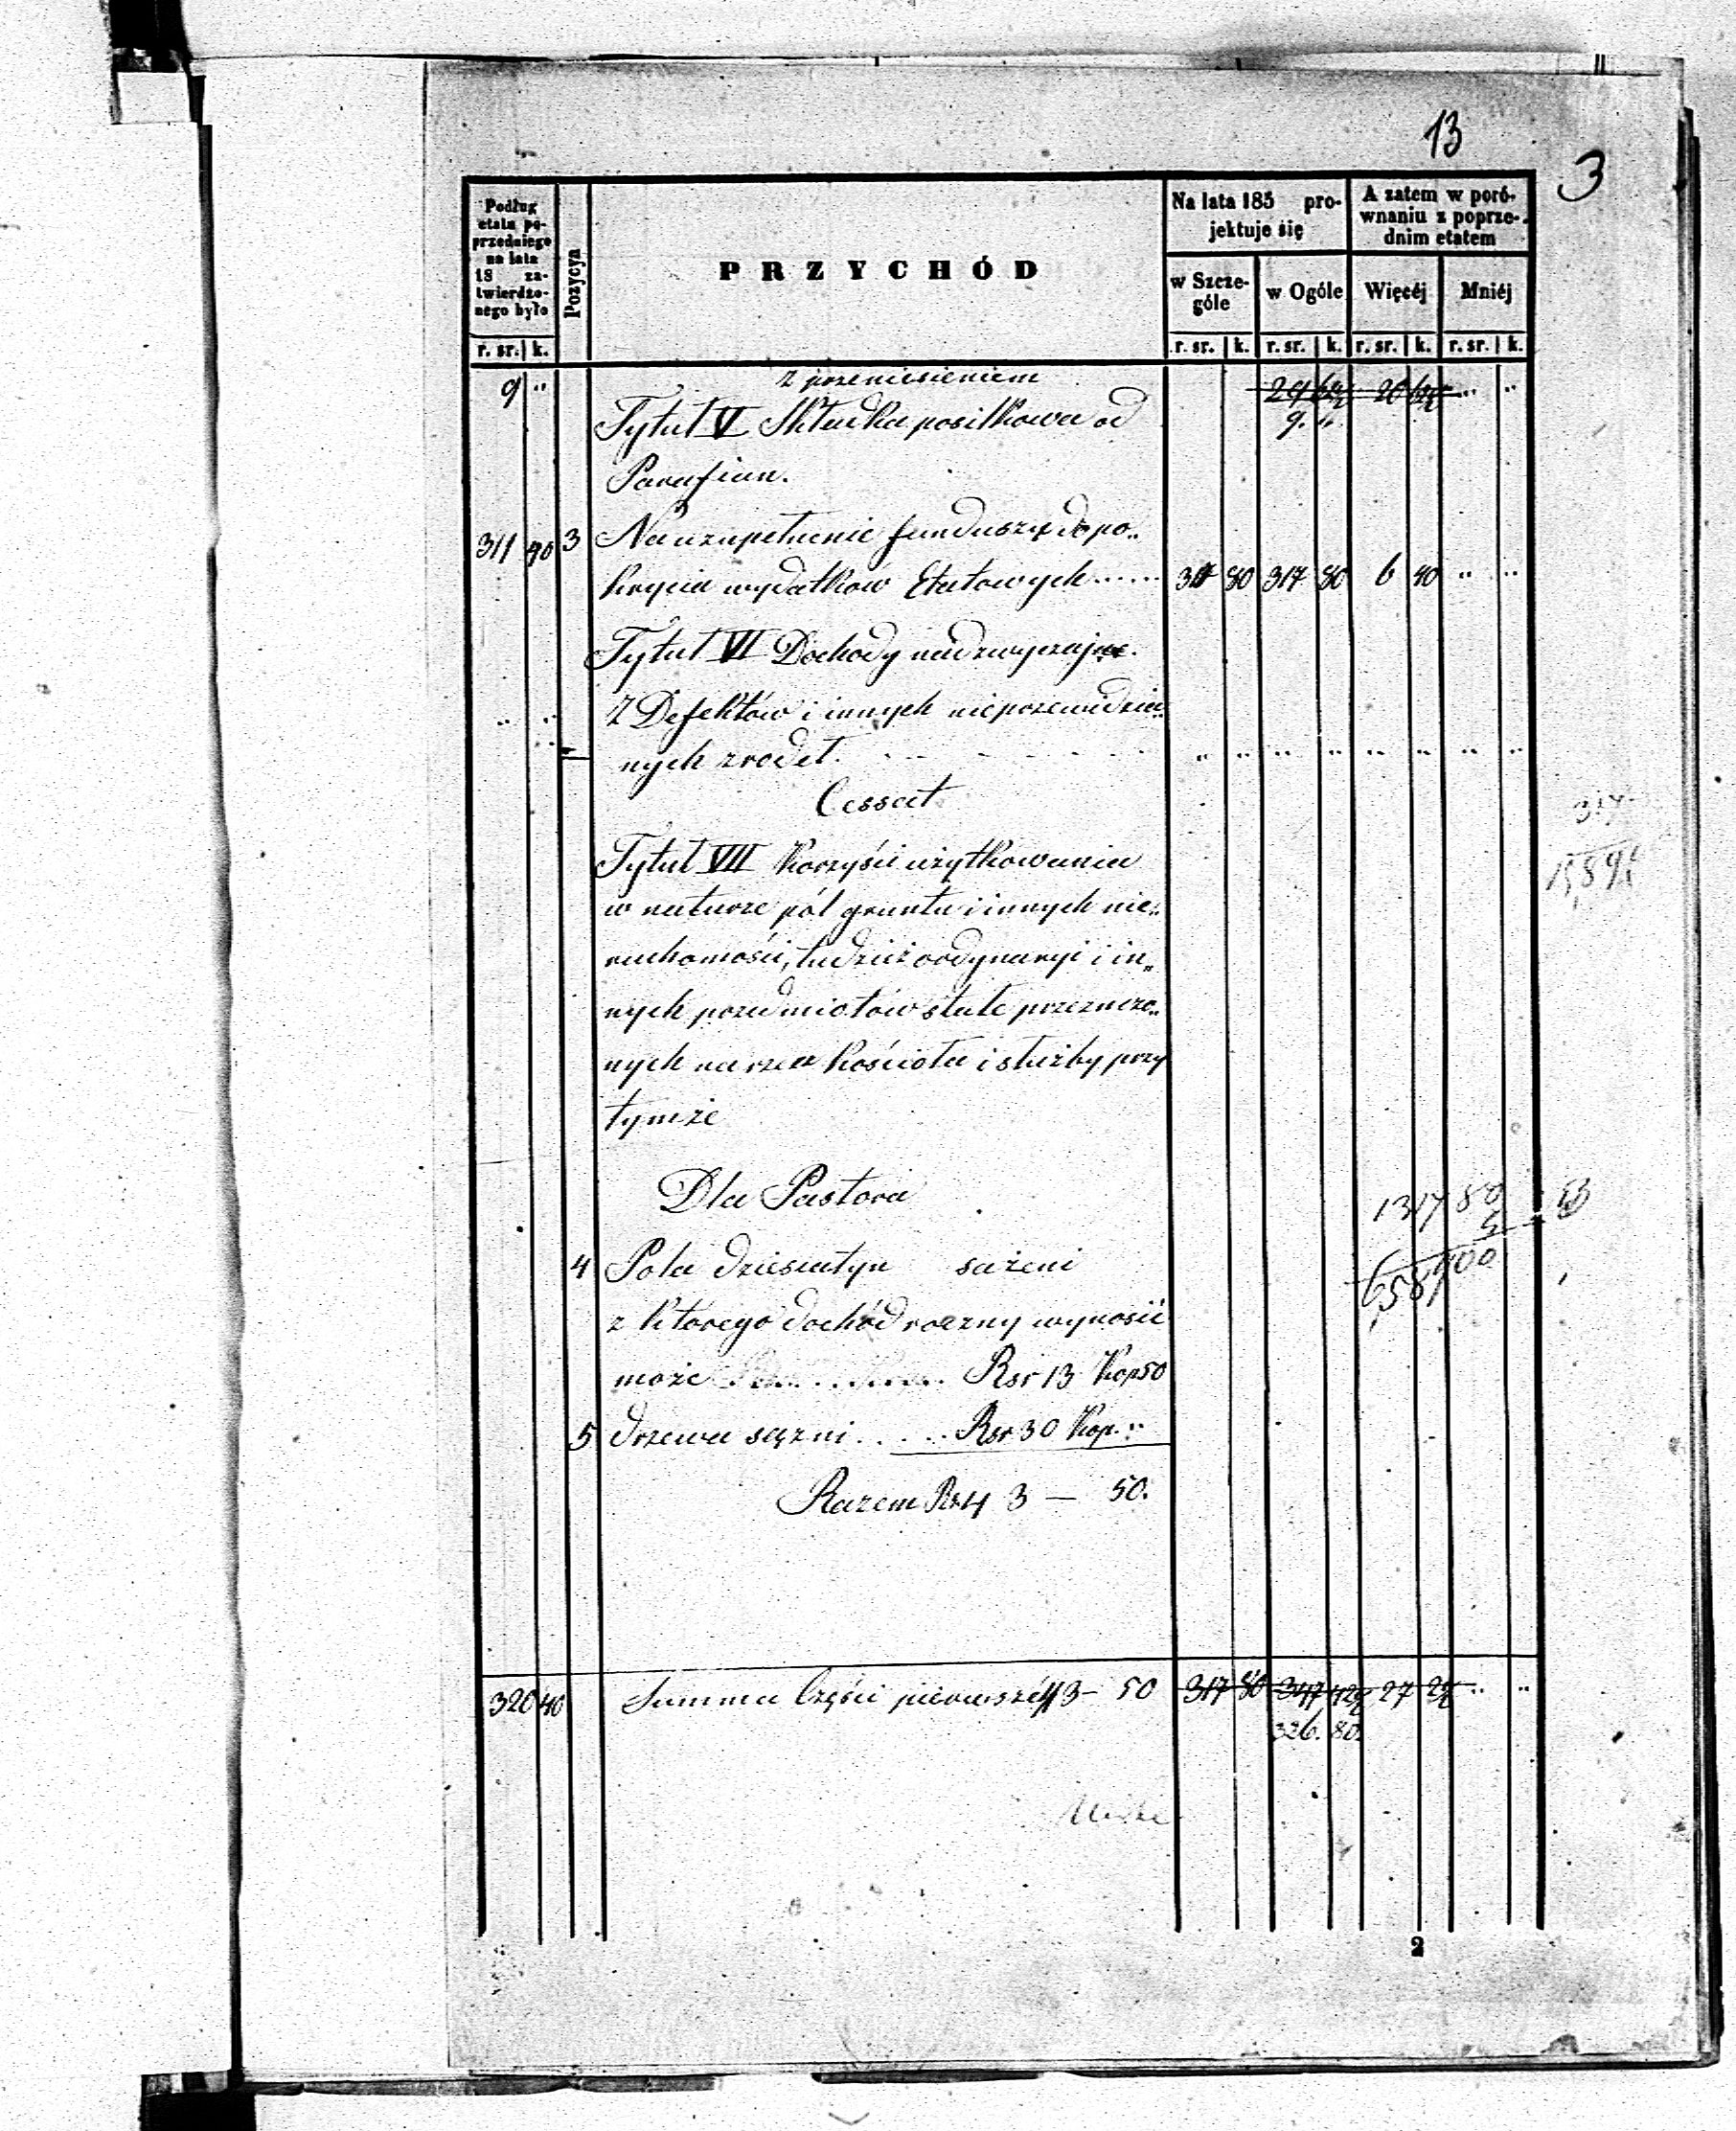 13
3
Podług etatu poprzedniego na lata 18 zatwierdzonego było
Pozycya
PRZYCHÓD
Na lata 185 projektuje się
A zatem w porównaniu z poprzednim etatem
w Szczególe
w Ogóle
Więcéj
Mniéj
r. sr. k. r. sr. k. r. sr. k. r. sr. k. r. sr. k.
9 " z przeniesieniem 29 20 " "
Tytuł V Składka posiłkowa od 9. "
Parafian.
311 40 3 Na uzupełnienie funduszu do po„
krycia wydatków Etatowych...... 317 80 317 80 6 40 " "
Tytuł VI Dochody nadzwyczajne.
" " Z Defektów i innych nieprzewidzia„
nych zrodeł. " " " " " " " "
Cessat
Tytuł VII Korzyści użytkowania
w naturze pól gruntu i innych nie„
ruchomości, tudzież ordynaryi i in„
nych przedmiotów stale przeznaczo„
nych na rzecz Kościoła i służby przy
tymże
Dla Pastora
1317 80
4 Pola dziesiatyn sażeni
z którego dochód roczny wynosić
może Rsr 13 Kop 50
5 drzewa sążni..... Rsr 30 Kop. "
Razem Rs 43 — 50.
320 40 Summa Części pierwszéj 43 — 50 317 80 347 42½ 27 2½ " "
326. 80.
2